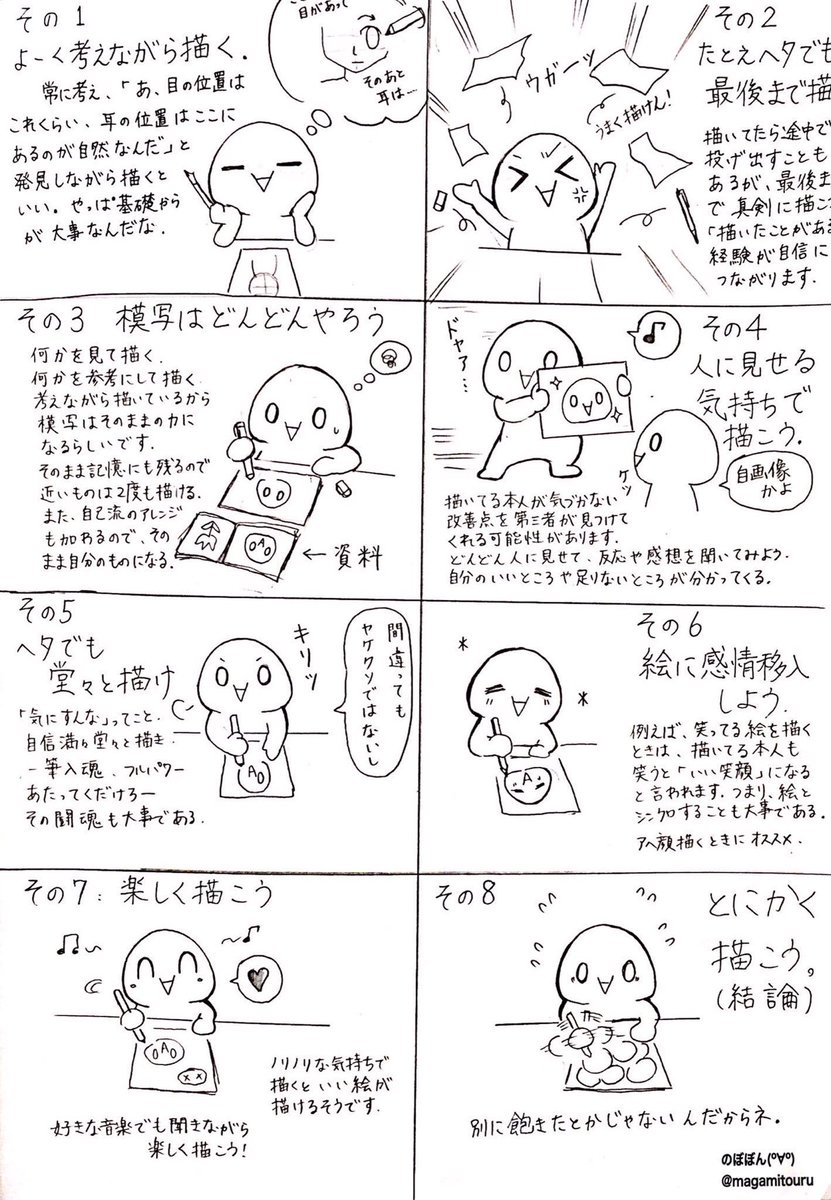 その1
よーく考えながら描く.
常に考え、「あ、目の位置は
これくらい、耳の位置はここに
あるのが自然なんだ」と
発見しながら描くと
いい。やっぱ基礎から
が大事なんだな.
目があって
そのあと
耳は…
その2
たとえヘタでも
最後まで描
描いてたら途中で
投げ出すことも
あるが、最後ま
で真剣に描こ
「描いたことがある
経験が自信に
つながります.
ウガーッ
うまく描けん!
その3 模写はどんどんやろう
何かを見て描く.
何かを参考にして描く.
考えながら描いているから
模写はそのままの力に
なるらしいです.
そのまま記憶にも残るので
近いものは2度も描ける.
また、自己流のアレンジ
も加わるので、その
まま自分のものになる.
←資料
その4
人に見せる
気持ちで
描こう.
ドヤァ…
ケッ
自画像
かよ
描いてる本人が気づかない
改善点を第三者が見つけて
くれる可能性があります.
どんどん人に見せて、反応や感想を聞いてみよう.
自分のいいところや足りないところが分かってくる.
その5
ヘタでも
堂々と描け
「気にすんな」ってこと.
自信満々堂々と描き.
一筆入魂、フルパワー
あたってくだけろー
その闘魂も大事である.
キリッ
間違っても
ヤケクソではないし
その6
絵に感情移入
しよう.
例えば、笑ってる絵を描く
ときは、描いてる本人も
笑うと「いい笑顔」になる
と言われます.つまり、絵と
シンクロすることも大事である.
アヘ顔描くときにオススメ.
その7:楽しく描こう
ノリノリな気持ちで
描くといい絵が
描けるそうです.
好きな音楽でも聞きながら
楽しく描こう!
その8
とにかく
描こう。
(結論)
別に飽きたとかじゃないんだからネ.
のぼぼん(º∀º)
@magamitouru